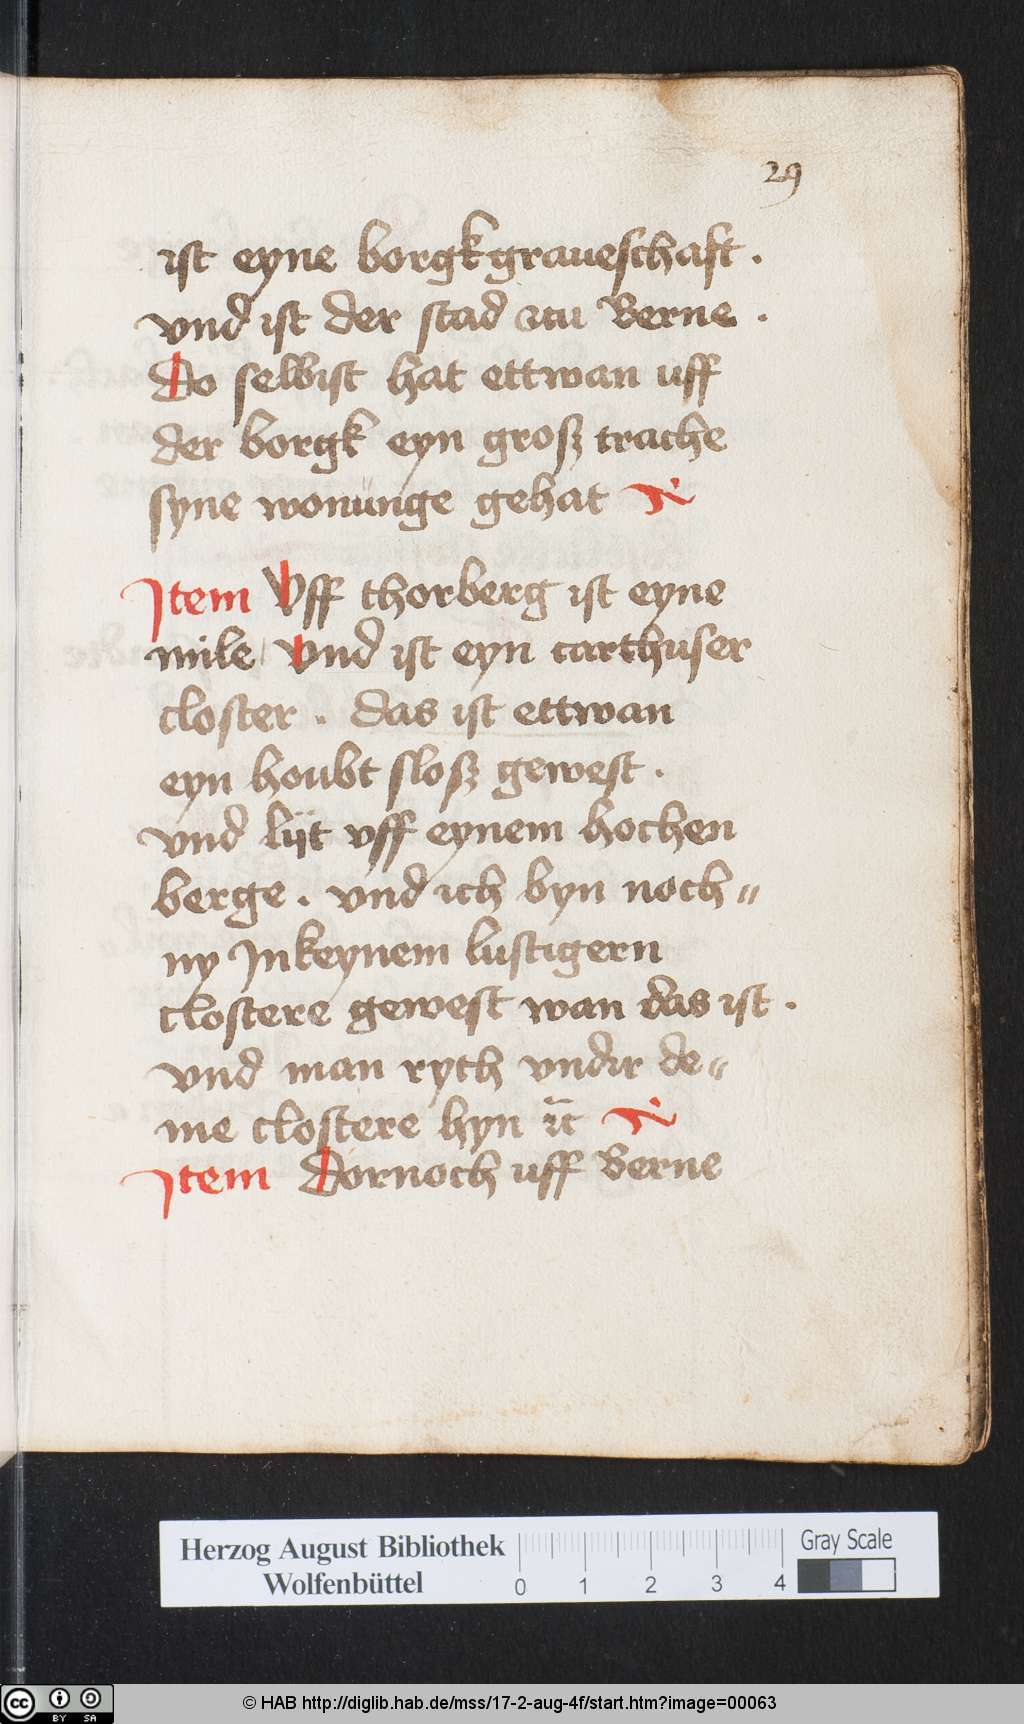 29
ist eyne borgkgraueschaft .
vnd ist der stad zcu Berne .
Do selbist hat ettwan uff
der borgk eyn grosz trache
syne wonunge gehat
Item Uff thorberg ist eyne
mile / Vnd ist eyn carthuser
closter . das ist ettwan
eyn houbt slosz gewest .
vnd lijt vff eynem hochen
berge . vnd ich byn noch=
ny Inkeynem lustigern
clostere gewest wan das ist .
vnd man rych vndir de=
me clostere hyn ꝛc̄
Item Dornoch uff Berne
Herzog August Bibliothek
Wolfenbüttel
0 1 2 3 4
Gray Scale
cc BY SA
© HAB http://diglib.hab.de/mss/17-2-aug-4f/start.htm?image=00063